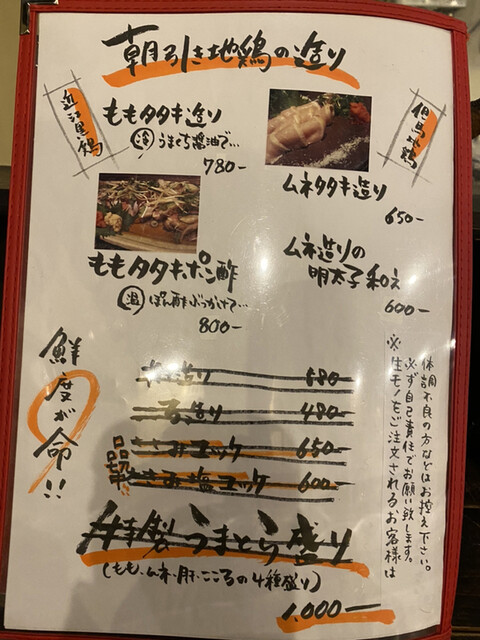 朝引き地鶏の造り
近江黒鶏
但馬地鶏
ももタタキ造り
冷 うまくち醤油で…
780-
ムネタタキ造り
650-
ももタタキポン酢
温 ぽん酢ぶっかけて…
800-
ムネ造りの
明太子和え
600-
鮮度が命!!
※生モノをご注文されるお客様は
必ず自己責任でお願い致します。
体調不良の方などはお控え下さい。
造り 680-
造り 480-
品切
さみユッケ 650-
ささみ塩ユッケ 600-
特製うまとら盛り
(もも、ムネ、肝、こころの4種盛り)
1,000-